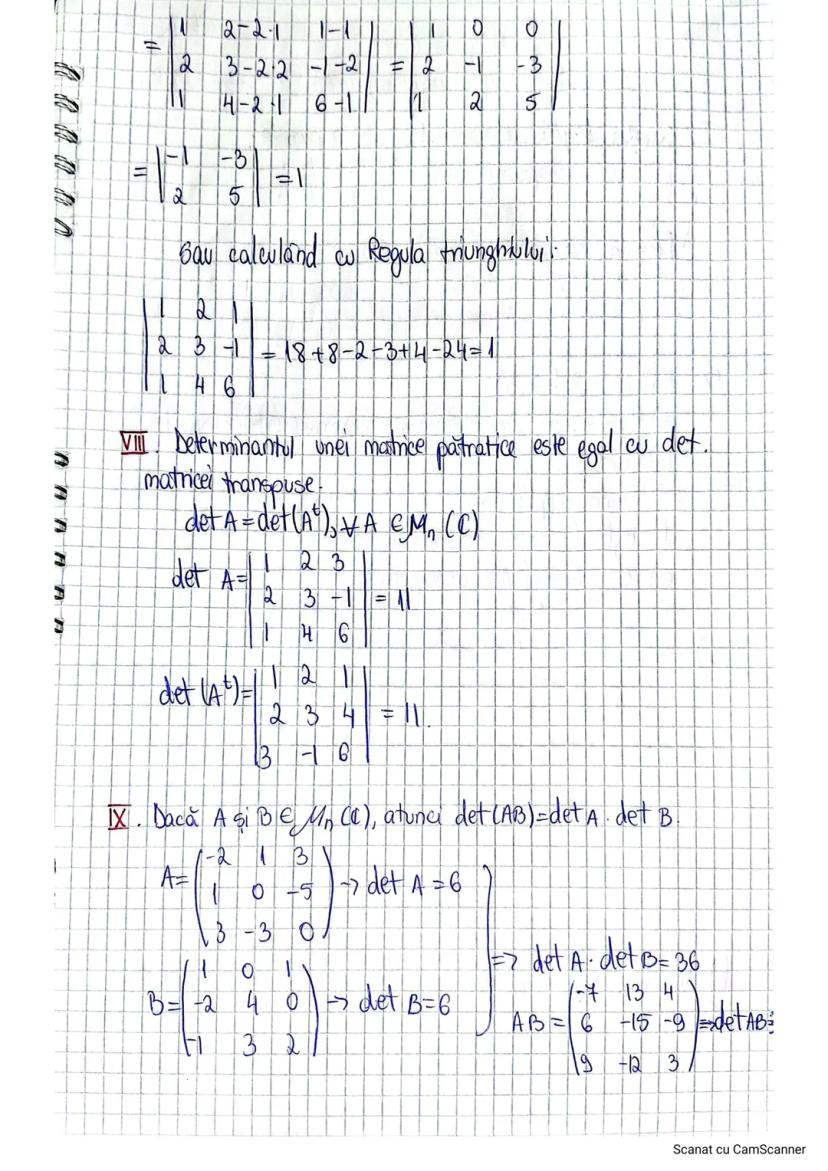 = |1 2-2·1 1-1| = |1 0 0|
|2 3-2·2 -1-2| |2 -1 -3|
|1 4-2·1 6-1| |1 2 5|
= |-1 -3| = 1
|2 5|
Sau calculând cu Regula triunghiului:
|1 2 1|
|2 3 -1| = 18+8-2-3+4-24=1
|1 4 6|
VIII. Determinantul unei matrice pătratice este egal cu det.
matricei transpuse.
det A = det(Aᵗ), ∀ A ∈ Mₙ (C)
det A= |1 2 3|
|2 3 -1| = 11
|1 4 6|
det (Aᵗ)= |1 2 1|
|2 3 4| = 11.
|3 -1 6|
IX. Dacă A și B ∈ Mₙ (C), atunci det(AB)=det A · det B.
A= (-2 1 3)
(1 0 -5) → det A = 6
(3 -3 0)
=> det A · det B = 36
B= (1 0 1)
(-2 4 0) → det B=6
(-1 3 2)
AB = (-7 13 4)
(6 -15 -9) => det AB=
(9 -12 3)
Scanat cu CamScanner